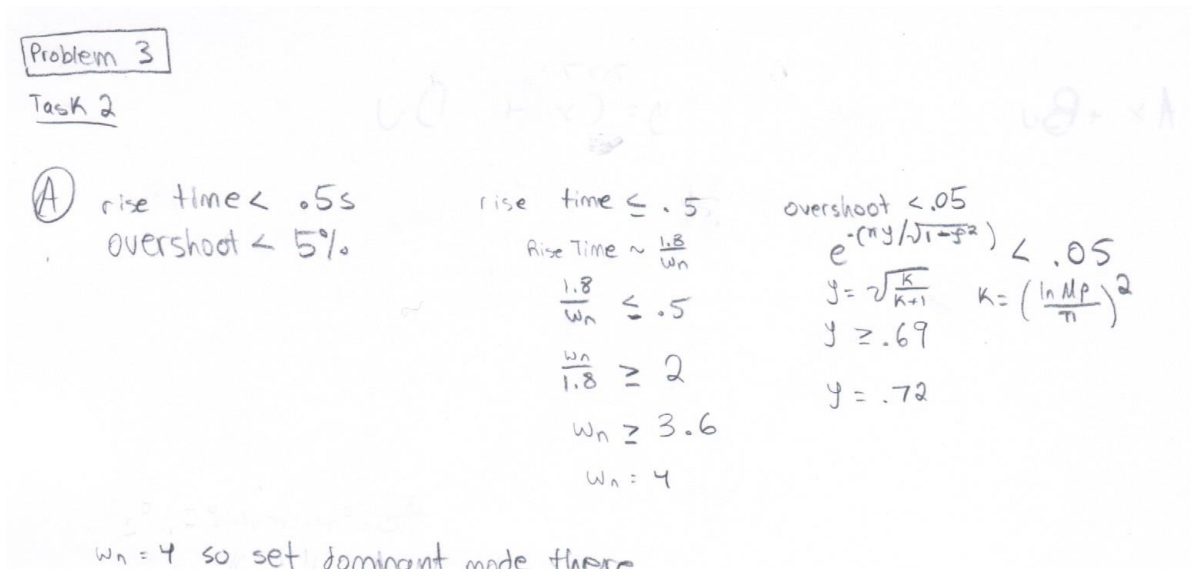 Problem 3
Task 2
A rise time < .5s
overshoot < 5%
rise time ≤ .5
Rise Time ~ 1.8/ωn
1.8/ωn ≤ .5
ωn/1.8 ≥ 2
ωn ≥ 3.6
ωn = 4
overshoot < .05
e^-(πζ/√1-ζ²) < .05
ζ = √K/K+1 K = (ln Mp/π)²
ζ ≥ .69
ζ = .72
ωn = 4 so set dominant mode there